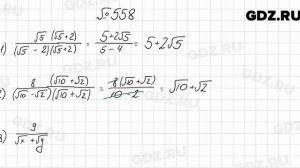 №558
GDZ.RU
1) √5 (√5+2) / (√5 - 2)(√5+2) = 5+2√5 / 5-4 = 5+2√5
2) 8 (√10+√2) / (√10-√2)(√10+√2) = 8(√10+√2) / 10-2 = √10+√2
3) 9 / √x+√y
GDZ.RU